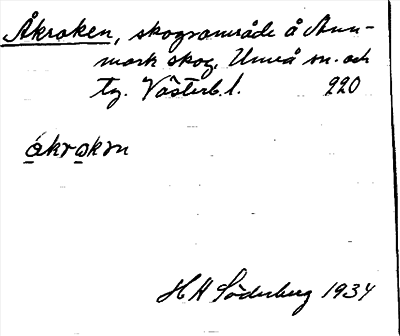 Åkroken, skogsområde å Ann-
mark skog, Umeå sn. och
tg. Västerb. l. 220
åkrωkm
H H Söderberg 1934